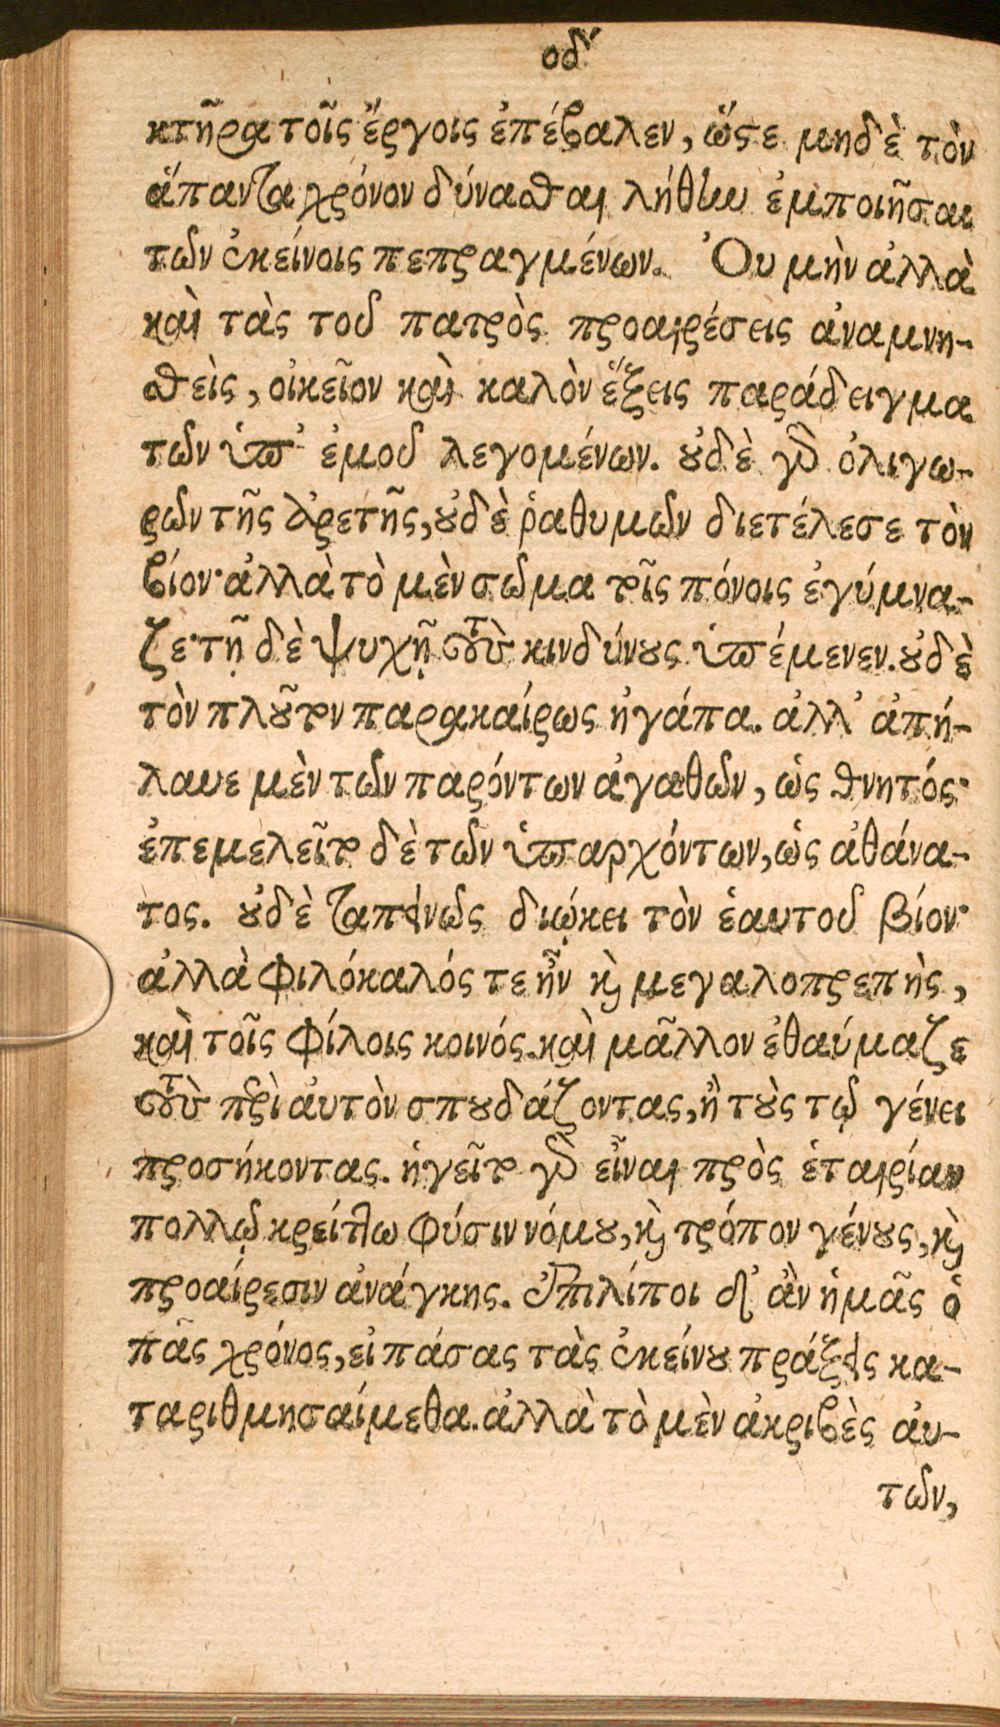 οδʹ
κτῆρα τοῖς ἔργοις ἐπέβαλεν, ὥστε μηδὲ τὸν
ἅπαντα χρόνον δύνασθαι λήθην ἐμποιῆσαι
τῶν ἐκείνοις πεπραγμένων. Ὀυ μὴν ἀλλὰ
καὶ τὰς τοῦ πατρὸς προαιρέσεις ἀναμνη-
σθεὶς, οἰκεῖον καὶ καλὸν ἕξεις παράδειγμα
τῶν ὑπ' ἐμοῦ λεγομένων. οὐδὲ γὰρ ὀλιγω-
ρῶν τῆς ἀρετῆς, οὐδὲ ῥαθυμῶν διετέλεσε τὸν
βίον· ἀλλὰ τὸ μὲν σῶμα τοῖς πόνοις ἐγύμνα-
ζε· τῇ δὲ ψυχῇ τοὺς κινδύνους ὑπέμενεν. οὐδὲ
τὸν πλοῦτον παρακαίρως ἠγάπα. ἀλλ' ἀπή-
λαυε μὲν τῶν παρόντων ἀγαθῶν, ὡς θνητός·
ἐπεμελεῖτο δὲ τῶν ὑπαρχόντων, ὡς ἀθάνα-
τος. οὐδὲ ταπεινῶς διῴκει τὸν ἑαυτοῦ βίον·
ἀλλὰ φιλόκαλός τε ἦν καὶ μεγαλοπρεπὴς,
καὶ τοῖς φίλοις κοινός. καὶ μᾶλλον ἐθαύμαζε
τοὺς περὶ ἀυτὸν σπουδάζοντας, ἢ τοὺς τῷ γένει
προσήκοντας. ἡγεῖτο γὰρ εἶναι πρὸς ἑταιρίαν
πολλῷ κρείττω φύσιν νόμου, καὶ τρόπον γένους, καὶ
προαίρεσιν ἀνάγκης. ἐπιλίποι δ' ἂν ἡμᾶς ὁ
πᾶς χρόνος, εἰ πάσας τὰς ἐκείνου πράξεις κα-
ταριθμησαίμεθα. ἀλλὰ τὸ μὲν ἀκριβὲς ἀυ-
τῶν,